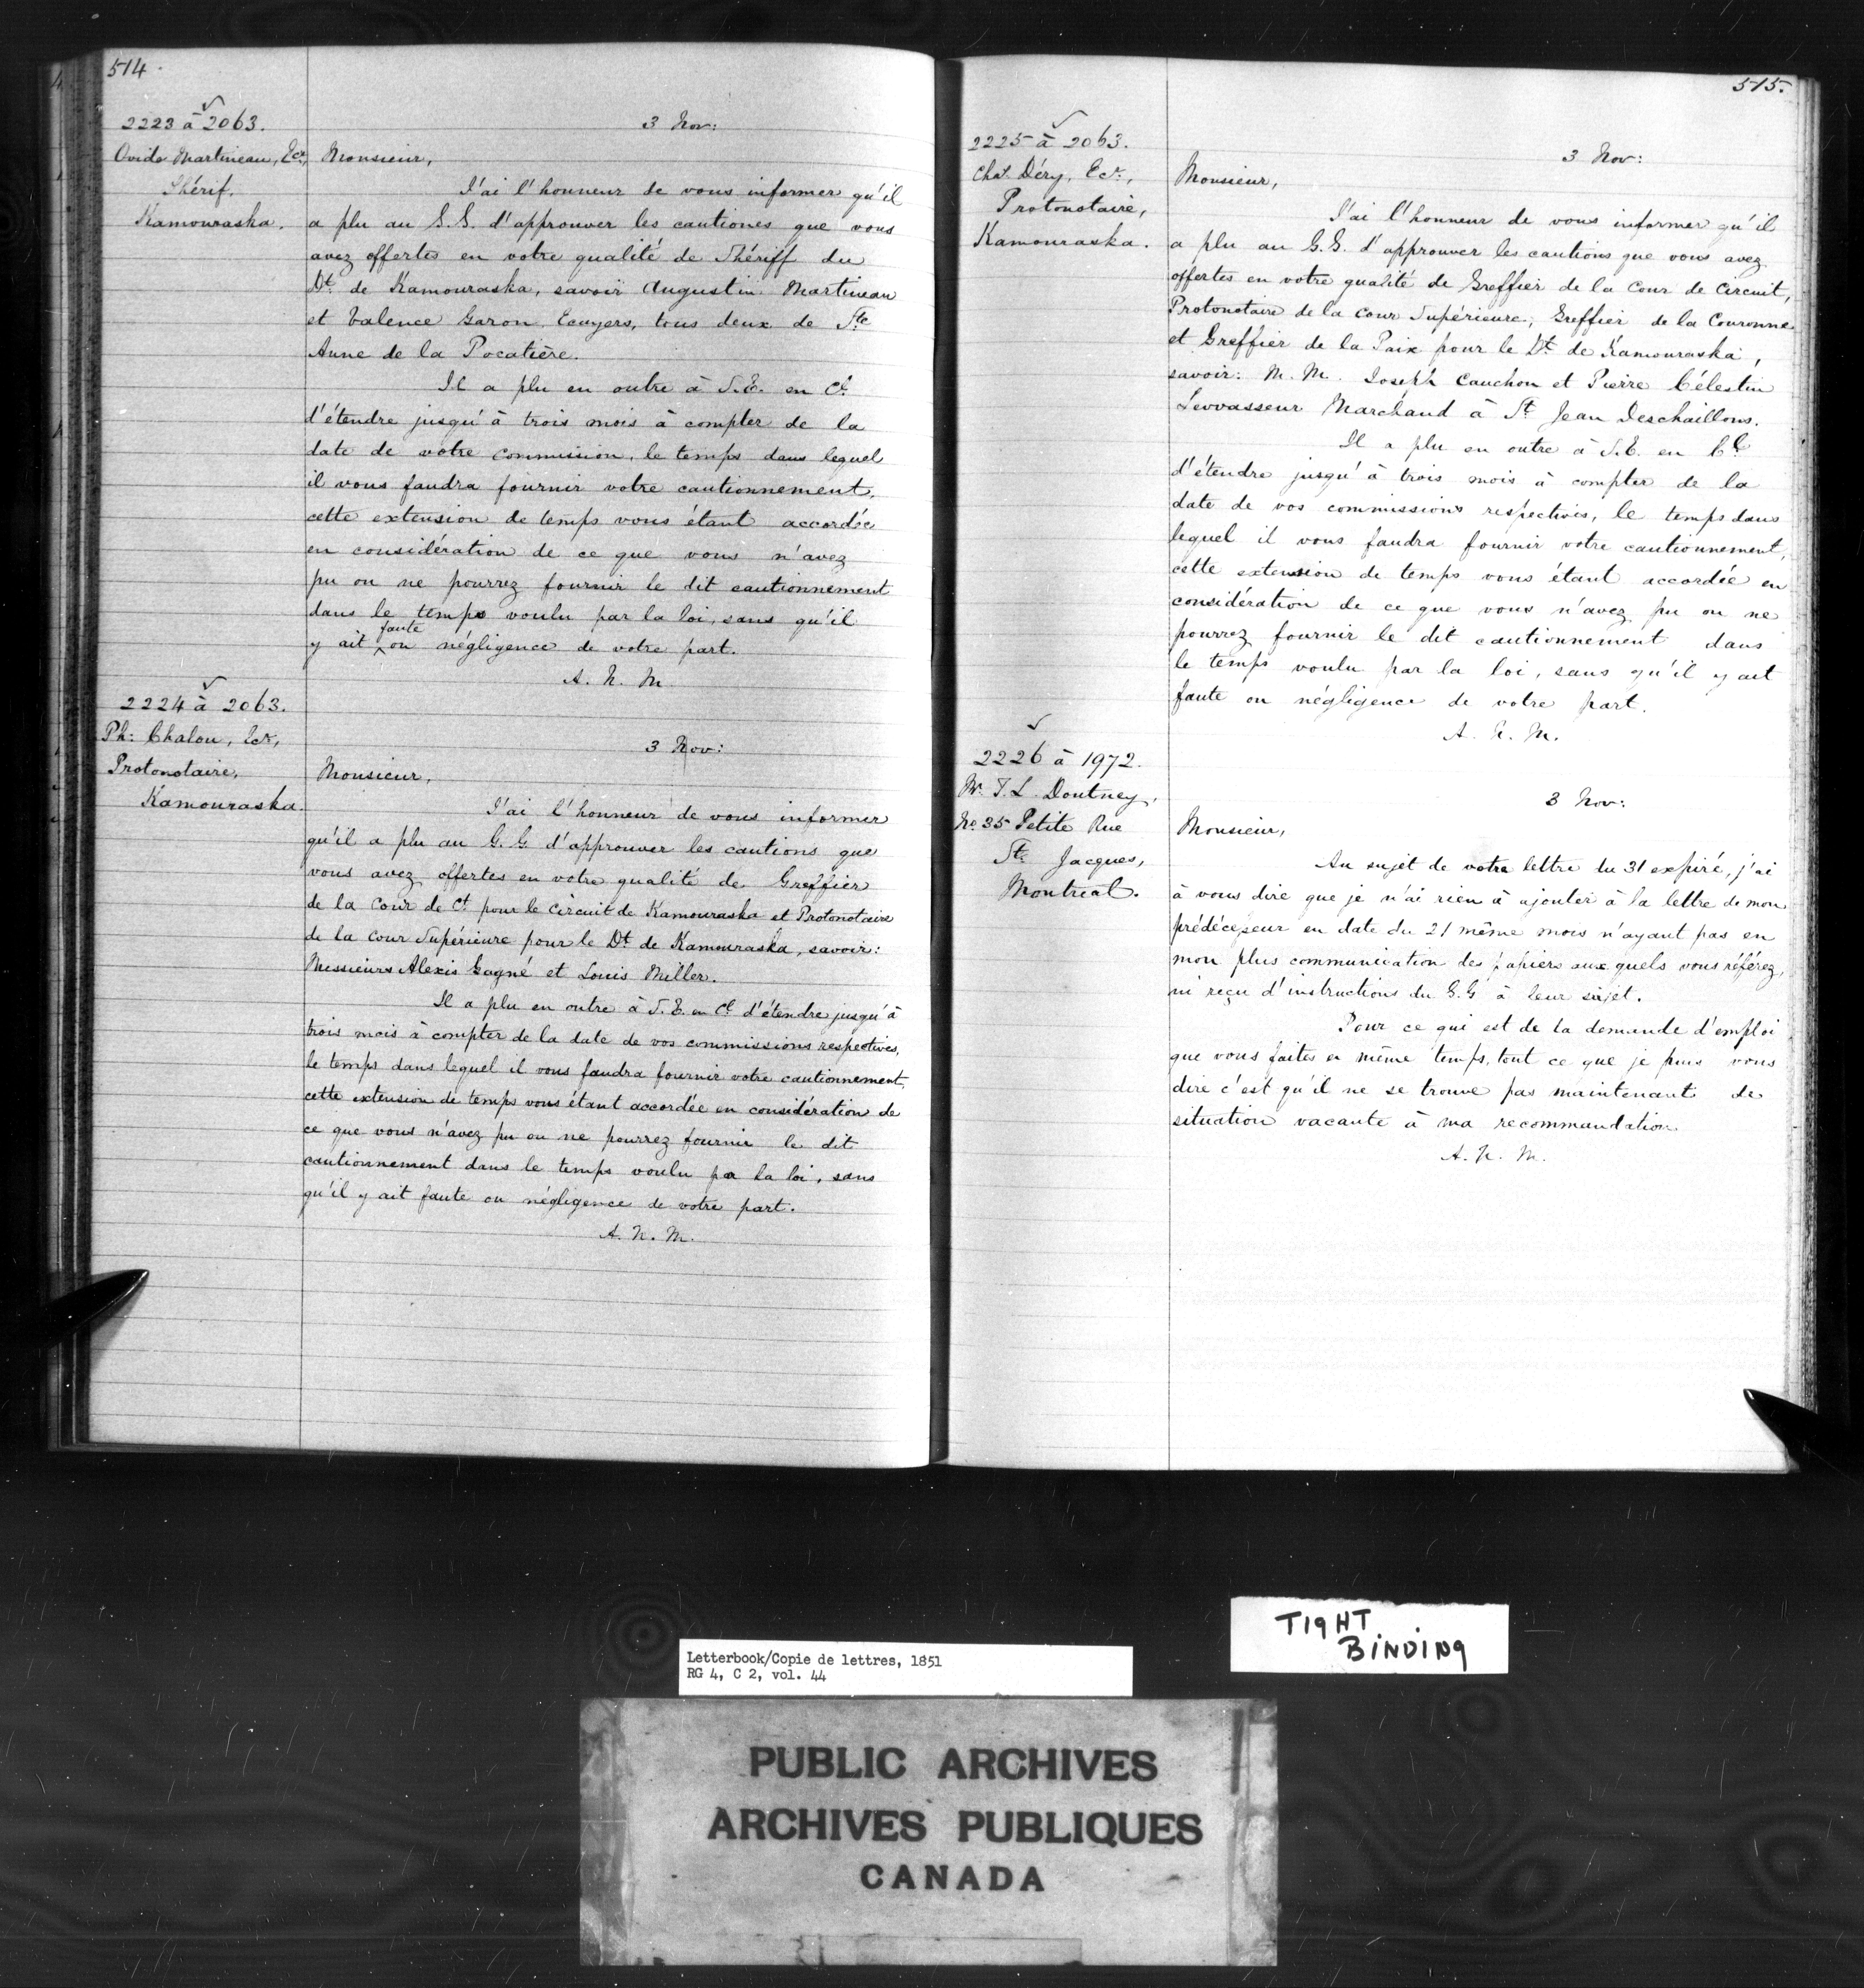 514
2223 à 2063.
Ovide Martineau, Ecr,
Shérif.
Kamouraska.
3 Nov:
Monsieur,
J'ai l'honneur de vous informer qu'il
a plu au G.G. d'approuver les cautiones que vous
avez offertes en votre qualité de Shériff du
Dt. de Kamouraska, savoir Augustin Martineau
et Valence Garon Ecuyers, tous deux de Ste
Anne de la Pocatière.
Il a plu en outre à S.E. en Cl
d'étendre jusqu'à trois mois à compter de la
date de votre commission, le temps dans lequel
il vous faudra fournir votre cautionnement,
cette extension de temps vous étant accordée
en considération de ce que vous n'avez
pu ou ne pourrez fournir le dit cautionnement
dans le temps voulu par la loi, sans qu'il
y ait faute ou négligence de votre part.
A. N. M.
2224 à 2063.
Ph: Chalou, Ecr,
Protonotaire,
Kamouraska.
3 Nov:
Monsieur,
J'ai l'honneur de vous informer
qu'il a plu au G.G. d'approuver les cautions que
vous avez offertes en votre qualité de Greffier
de la Cour de Ct. pour le Circuit de Kamouraska et Protonotaire
de la Cour Supérieure pour le Dt. de Kamouraska, savoir:
Messieurs Alexis Gagné et Louis Miller.
Il a plu en outre à S.E. en Cl d'étendre jusqu'à
trois mois à compter de la date de vos commissions respectives,
le temps dans lequel il vous faudra fournir votre cautionnement,
cette extension de temps vous étant accordée en considération de
ce que vous n'avez pu ou ne pourrez fournir le dit
cautionnement dans le temps voulu par la loi, sans
qu'il y ait faute ou négligence de votre part.
A. N. M.
515.
2225 à 2063.
Chas. Déry, Ecr.,
Protonotaire,
Kamouraska.
3 Nov:
Monsieur,
J'ai l'honneur de vous informer qu'il
a plu au G.G. d'approuver les cautions que vous avez
offertes en votre qualité de Greffier de la Cour de Circuit,
Protonotaire de la Cour Supérieure, Greffier de la Couronne
et Greffier de la Paix pour le Dt. de Kamouraska,
savoir: M.M. Joseph Cauchon et Pierre Célestin
Levvasseur Marchand à St Jean Deschaillons.
Il a plu en outre à S.E. en Cl
d'étendre jusqu'à trois mois à compter de la
date de vos commissions respectives, le temps dans
lequel il vous faudra fournir votre cautionnement,
cette extension de temps vous étant accordée en
considération de ce que vous n'avez pu ou ne
pourrez fournir le dit cautionnement dans
le temps voulu par la loi, sans qu'il y ait
faute ou négligence de votre part.
A. N. M.
2226 à 1972.
Mr. T.L. Doutney,
No. 35 Petite Rue
St. Jacques,
Montreal.
3 Nov:
Monsieur,
Au sujet de votre lettre du 31 expiré, j'ai
à vous dire que je n'ai rien à ajouter à la lettre de mon
prédécesseur en date du 21 même mois n'ayant pas en
mon plus communication des papiers aux quels vous référez,
ni reçu d'instructions du G.G à leur sujet.
Pour ce qui est de la demande d'emploi
que vous faites en même temps, tout ce que je puis vous
dire c'est qu'il ne se trouve pas maintenant de
situation vacante à ma recommandation.
A. N. M.
TIGHT
BINDING
Letterbook/Copie de lettres, 1851
RG 4, C 2, vol. 44
PUBLIC ARCHIVES
ARCHIVES PUBLIQUES
CANADA